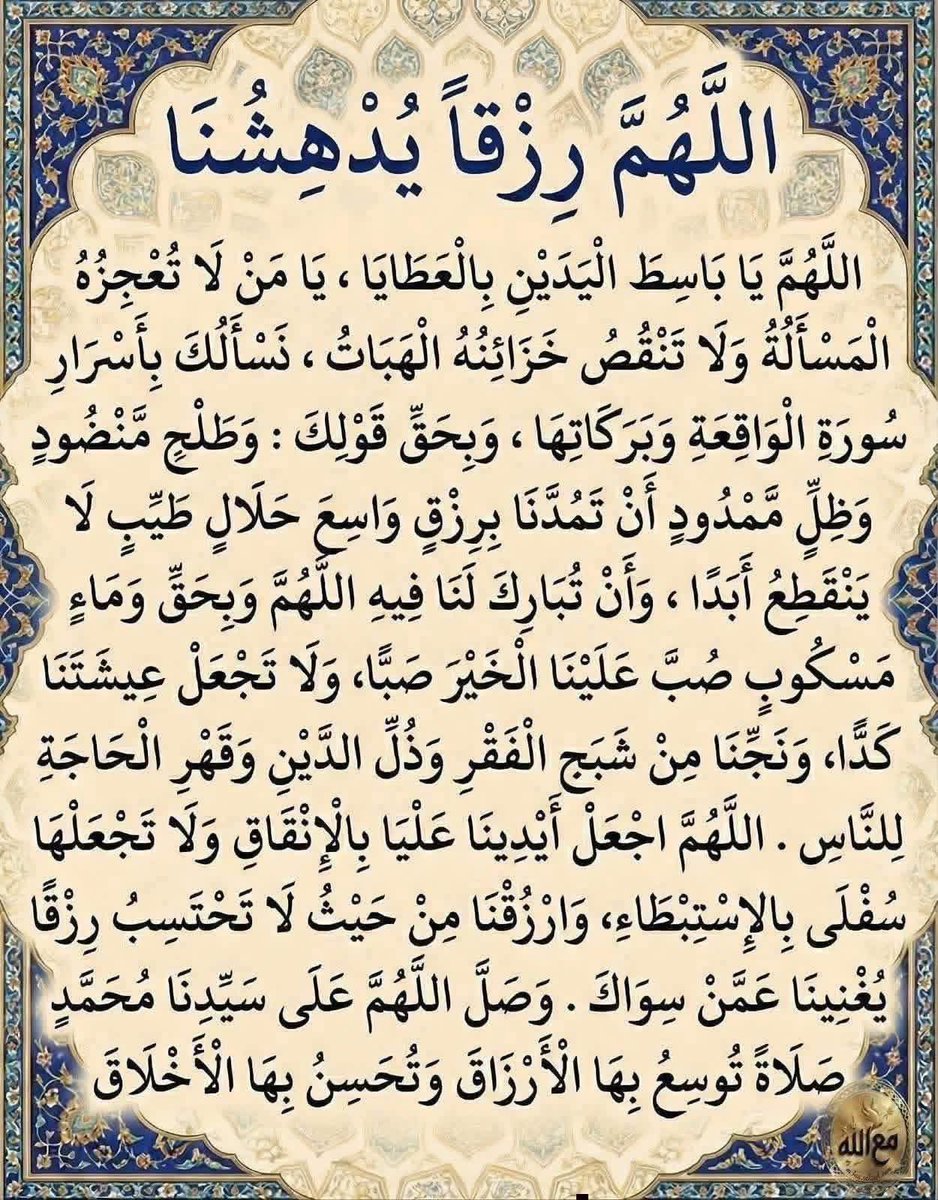 اللَّهُمَّ رِزْقاً يُدْهِشُنَا
اللَّهُمَّ يَا بَاسِطَ الْيَدَيْنِ بِالْعَطَايَا ، يَا مَنْ لَا تُعْجِزُهُ
الْمَسْأَلَةُ وَلَا تَنْقُصُ خَزَائِنُهُ الْهَبَاتُ ، نَسْأَلُكَ بِأَسْرَارِ
سُورَةِ الْوَاقِعَةِ وَبَرَكَاتِهَا ، وَبِحَقِّ قَوْلِكَ : وَطَلْحٍ مَّنْضُودٍ
وَظِلٍّ مَّمْدُودٍ أَنْ تَمُدَّنَا بِرِزْقٍ وَاسِعَ حَلَالٍ طَيِّبٍ لَا
يَنْقَطِعُ أَبَدًا ، وَأَنْ تُبَارِكَ لَنَا فِيهِ اللَّهُمَّ وَبِحَقِّ وَمَاءٍ
مَسْكُوبٍ صُبَّ عَلَيْنَا الْخَيْرَ صَبًّا، وَلَا تَجْعَلْ عِيشَتَنَا
كَدًّا، وَنَجِّنَا مِنْ شَبَجِ الْفَقْرِ وَذُلِّ الدَّيْنِ وَقَهْرِ الْحَاجَةِ
لِلنَّاسِ . اللَّهُمَّ اجْعَلْ أَيْدِينَا عَلْيَا بِالْإِنْقَاقِ وَلَا تَجْعَلْهَا
سُفْلَى بِالإِسْتِبْطَاءِ، وَارْزُقْنَا مِنْ حَيْثُ لَا تَحْتَسِبُ رِزْقًا
يُغْنِينَا عَمَّنْ سِوَاكَ . وَصَلَّ اللَّهُمَّ عَلَى سَيِّدِنَا مُحَمَّدٍ
صَلَاةً تُوسِعُ بِهَا الْأَرْزَاقَ وَتُحَسِنُ بِهَا الْأَخْلَاقَ
مع الله